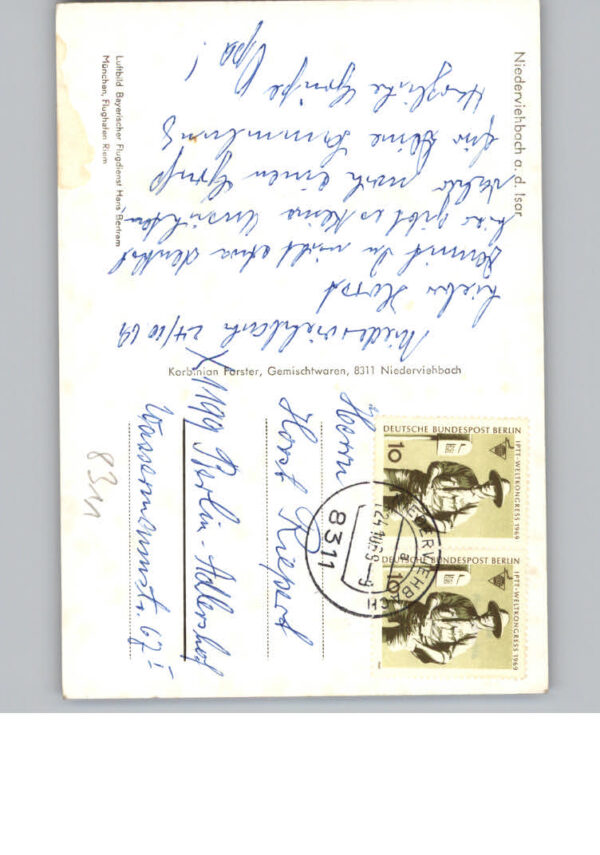 Niederviehbach a. d. Isar
Niederviehbach 24/10 69
Lieber Horst
Damit Du nicht etwa denkst
hier gibt es keine Ansichten,
noch einen Gruß
für Deine Sammlung
Herzliche Grüße Opa!
Luftbild Bayerischer Flugdienst Hans Bertram
München, Flughafen Riem
Korbinian Forster, Gemischtwaren, 8311 Niederviehbach
DEUTSCHE BUNDESPOST BERLIN
10
IPTT-WELTKONGRESS 1969
DEUTSCHE BUNDESPOST BERLIN
10
IPTT-WELTKONGRESS 1969
NIEDERVIEHBACH
24.10.69
a
8311
Herrn
Horst Riepert
X 1199 Berlin-Adlershof
Wassermannstr. 67 I
8311